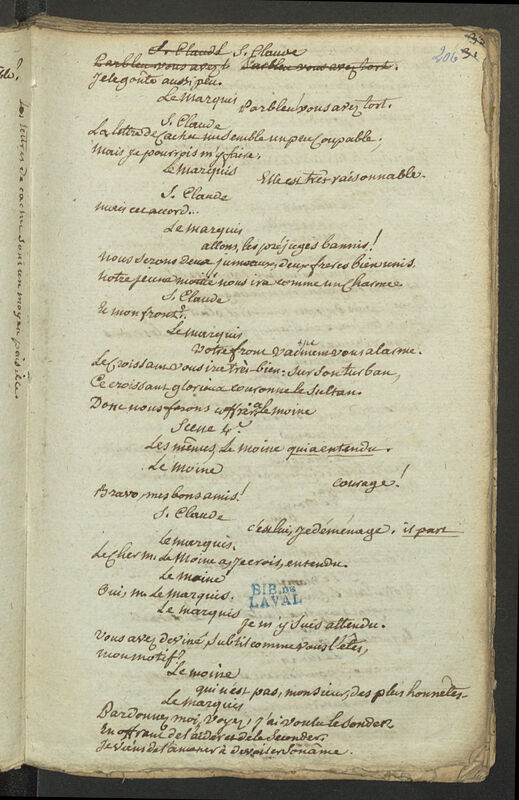 S. Claude S. Claude
Parbleu vous avez Parbleu vous avez tort.
206 31
Je le goûte aussi peu.
Le Marquis
Parbleu! vous avez tort.
S. Claude
La lettre de cachet me semble un peu coupable,
mais je pourrois m'y faire.
Le marquis
Elle est très raisonnable.
S. Claude
mais cet accord...
Le marquis
allons, les préjugés bannis!
nous serons deux jumeaux, deux freres bien unis.
notre jeune moitié nous ira comme un charme
S. Claude
Et mon front?
Le marquis
Votre front vainement vous alarme.
Le croissant vous ira très-bien: sur son turban,
Ce croissant glorieux couronne le sultan.
Donc nous ferons coffrer le moine
Scene 4e.
Les mêmes, Le moine qui a entendu.
Le moine
courage!
Bravo, mes bons amis!
S. Claude
c'est lui, je déménage, il part
Le marquis.
Le cher m. Le Moine a, je crois, entendu.
Le moine
Oui, m. Le marquis.
Le marquis
je m'y suis attendu.
Vous avez deviné, subtil comme vous l'êtes,
mon motif?
Le moine
qui n'est pas, monsieur, des plus honnêtes.
Le marquis
Pardonnez moi, voyez, j'ai voulu le sonder
En offrant de l'aider et de le seconder.
Je viens de l'amener à dévoiler son âme.
BIB. DE
LAVAL
Les lettres de cachet sont un moyen